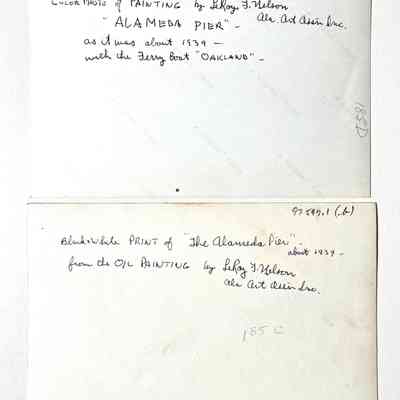 COLOR PHOTO of PAINTING by LeRoy F. Nelson
"ALAMEDA PIER" - Ala. Art Ass'n Inc.
as it was about 1939 -
with the Ferry Boat "OAKLAND" -
185D
97.597.1 (.6)
Black & White PRINT of "The Alameda Pier" -
about 1939 -
from the OIL PAINTING by LeRoy F. Nelson
Ala Art Ass'n Inc.
185 C